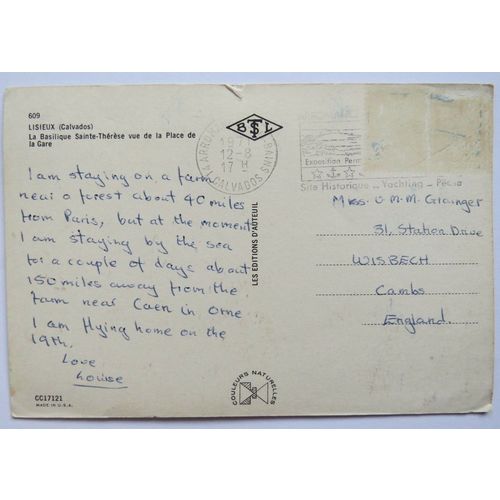 609
LISIEUX (Calvados)
La Basilique Sainte-Thérèse vue de la Place de
la Gare
I am staying on a farm
near a forest about 40 miles
from Paris, but at the moment
I am staying by the sea
for a couple of days about
150 miles away from the
farm near Caen in Orne
I am flying home on the
19th.
Love
Louise
CC17121
MADE IN U.S.A.
BTSL
12-8
17 H
CALVADOS
BAINS
LES EDITIONS D'AUTEUIL
COULEURS NATURELLES
Exposition Perm
Site Historique _ Yachting _ Pêche
Miss. O.M.M. Grainger
31, Station Drive
WISBECH
Cambs
England.